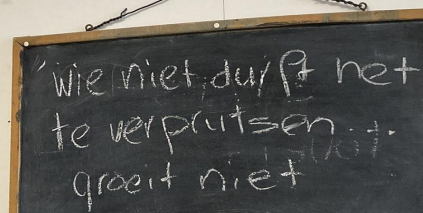 "wie niet durft het
te verprutsen
groeit niet